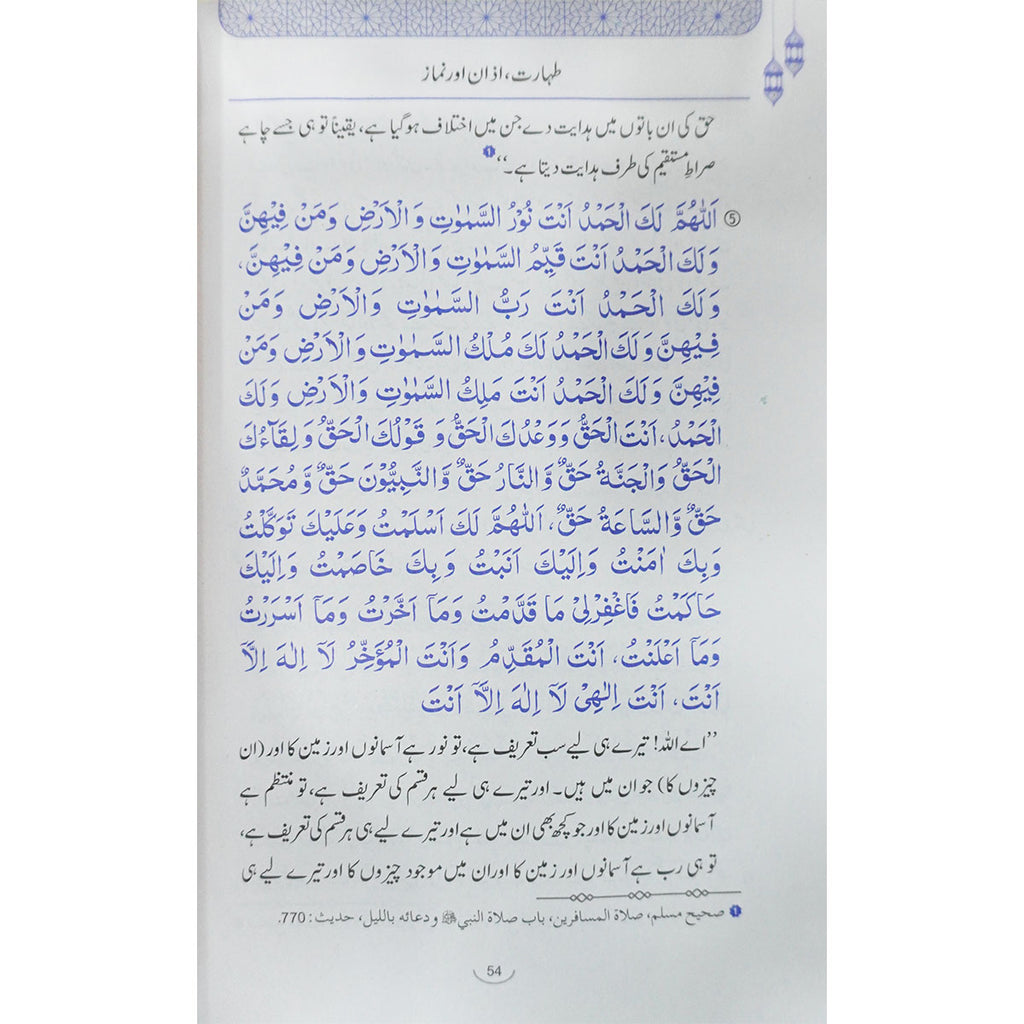 طہارت، اذان اور نماز
حق کی ان باتوں میں ہدایت دے جن میں اختلاف ہو گیا ہے، یقیناً تو ہی جسے چاہے
صراطِ مستقیم کی طرف ہدایت دیتا ہے۔‘‘ ❶
⑤ اَللّٰهُمَّ لَكَ الْحَمْدُ اَنْتَ نُوْرُ السَّمٰوٰتِ وَ الْاَرْضِ وَمَنْ فِيْهِنَّ
وَلَكَ الْحَمْدُ اَنْتَ قَيِّمُ السَّمٰوٰتِ وَالْاَرْضِ وَمَنْ فِيْهِنَّ،
وَلَكَ الْحَمْدُ اَنْتَ رَبُّ السَّمٰوٰتِ وَالْاَرْضِ وَمَنْ
فِيْهِنَّ وَلَكَ الْحَمْدُ لَكَ مُلْكُ السَّمٰوٰتِ وَالْاَرْضِ وَمَنْ
فِيْهِنَّ وَلَكَ الْحَمْدُ اَنْتَ مَلِكُ السَّمٰوٰتِ وَالْاَرْضِ وَلَكَ
الْحَمْدُ، اَنْتَ الْحَقُّ وَوَعْدُكَ الْحَقُّ وَ قَوْلُكَ الْحَقُّ وَ لِقَآءُكَ
الْحَقُّ وَالْجَنَّةُ حَقٌّ وَّالنَّارُ حَقٌّ وَّالنَّبِيُّوْنَ حَقٌّ وَّمُحَمَّدٌ
حَقٌّ وَّالسَّاعَةُ حَقٌّ، اَللّٰهُمَّ لَكَ اَسْلَمْتُ وَعَلَيْكَ تَوَكَّلْتُ
وَبِكَ اٰمَنْتُ وَاِلَيْكَ اَنَبْتُ وَبِكَ خَاصَمْتُ وَاِلَيْكَ
حَاكَمْتُ فَاغْفِرْلِيْ مَا قَدَّمْتُ وَمَآ اَخَّرْتُ وَمَآ اَسْرَرْتُ
وَمَآ اَعْلَنْتُ، اَنْتَ الْمُقَدِّمُ وَاَنْتَ الْمُؤَخِّرُ لَآ اِلٰهَ اِلَّآ
اَنْتَ، اَنْتَ اِلٰهِيْ لَآ اِلٰهَ اِلَّآ اَنْتَ
’’اے اللہ! تیرے ہی لیے سب تعریف ہے، تو نور ہے آسمانوں اور زمین کا اور (ان
چیزوں کا) جو ان میں ہیں۔ اور تیرے ہی لیے ہر قسم کی تعریف ہے، تو منتظم ہے
آسمانوں اور زمین کا اور جو کچھ بھی ان میں ہے اور تیرے لیے ہی ہر قسم کی تعریف ہے،
تو ہی رب ہے آسمانوں اور زمین کا اور ان میں موجود چیزوں کا اور تیرے لیے ہی
❶ صحیح مسلم، صلاة المسافرین، باب صلاة النبي ﷺ و دعائه باللیل، حدیث: 770.
54